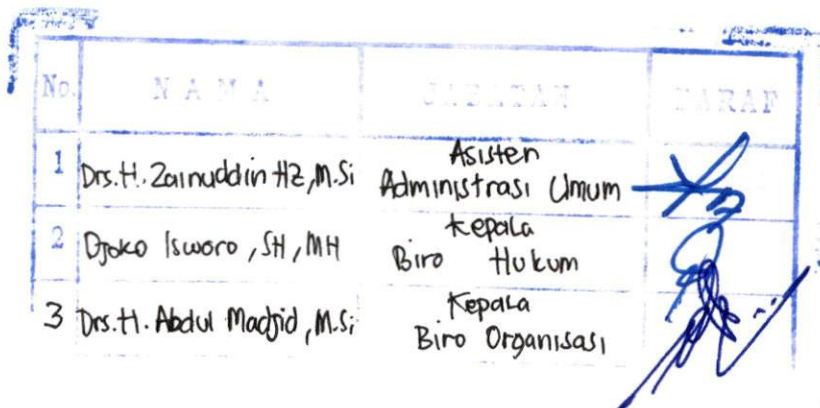 No. NAMA JABATAN PARAF
1 Drs. H. Zainuddin HZ, M.Si Asisten
Administrasi Umum
2 Djoko Isworo, SH, MH Kepala
Biro Hukum
3 Drs. H. Abdul Madjid, M.Si Kepala
Biro Organisasi